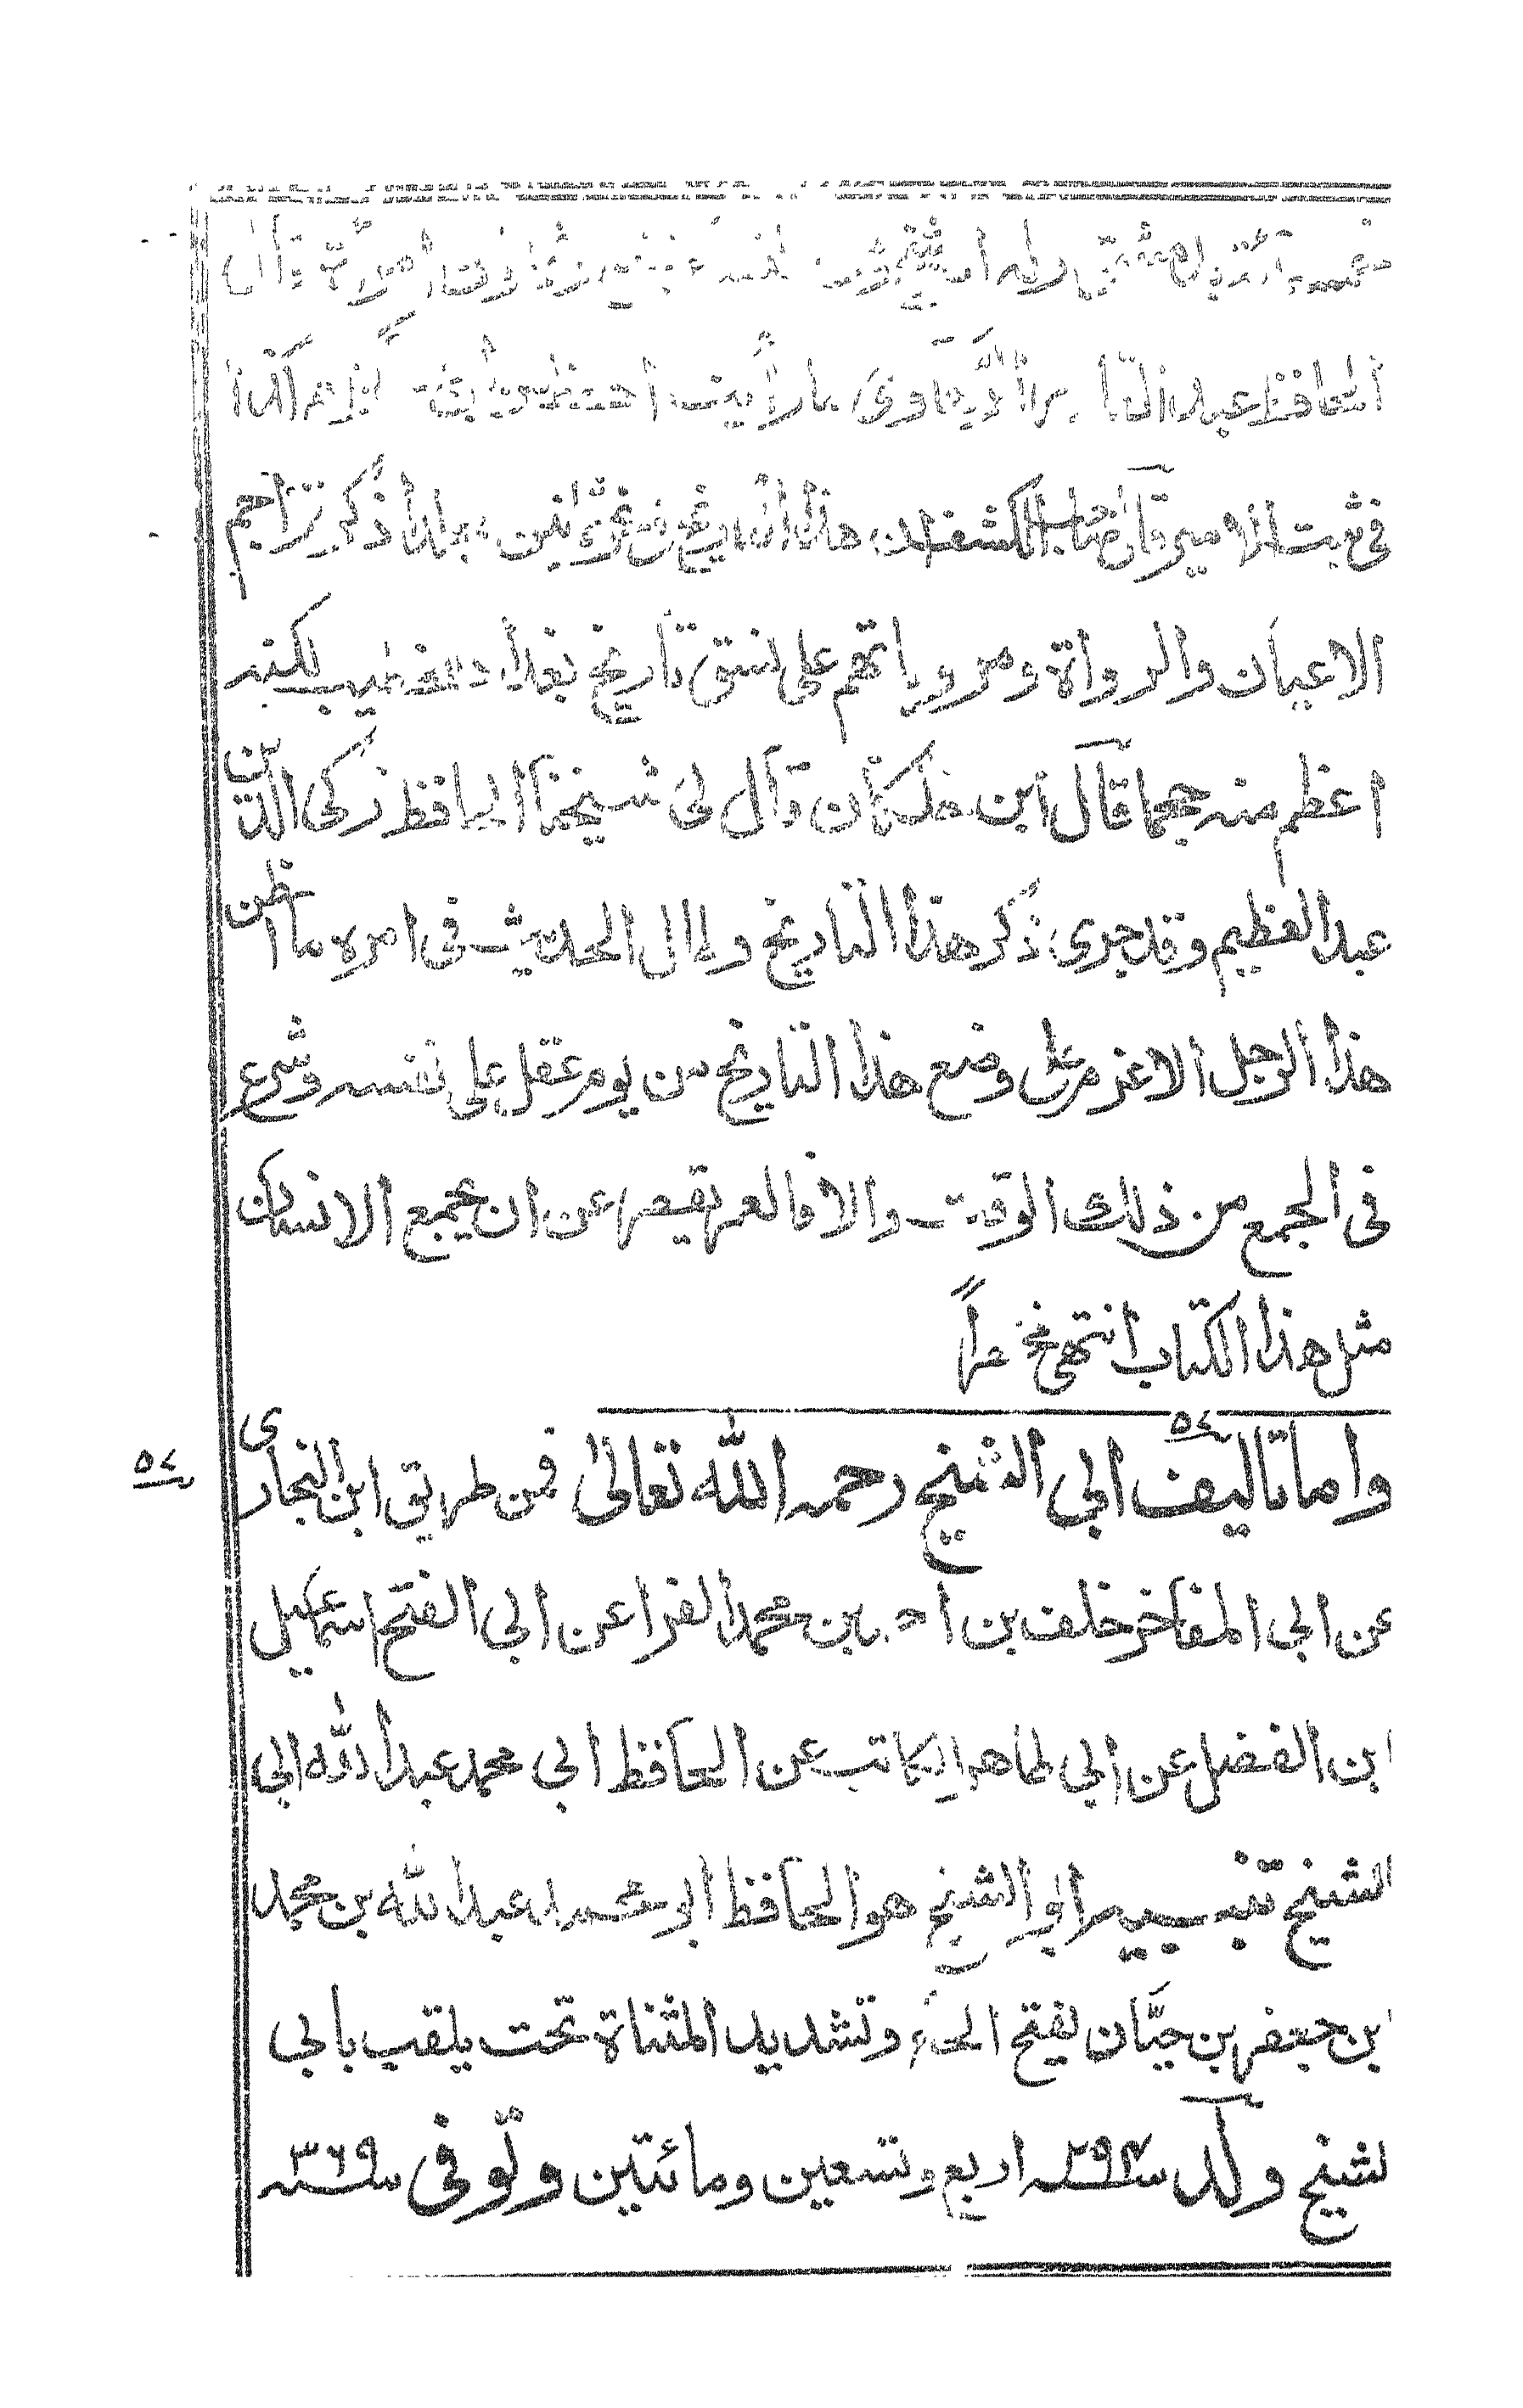 الحافظ عبد القا
في ثبت الامير وقال صاحب الكشف ان هذا التاريخ في نحو ثمانين مجلدا ذكر تراجم
الاعيان والرواة ومروياتهم على نسق تاريخ بغداد للخطيب لكنه
اعظم منه حجما قال ابن خلكان قال لى شيخنا الحافظ زكى الدين
عبد العظيم وقد جرى ذكر هذا التاريخ وطال الحديث فى امره ما اظن
هذا الرجل الا عزم على وضع هذا التاريخ من يوم عقل على نفسه وشرع
فى الجمع من ذلك الوقت والا فالعمر يقصر عن ان يجمع الانسان
مثل هذا الكتاب انتهى
٥٤ واما تاليف ابي الشيخ رحمه الله تعالى فمن طريق ابن البخارى ٥٤
عن ابي المفاخر خلف بن احمد بن محمد الفرا عن ابي الفتح اسمعيل
ابن الفضل عن ابي طاهر الكاتب عن الحافظ ابي محمد عبد الله ابي
الشيخ تنبيه ابو الشيخ هو الحافظ ابو محمد عبد الله بن محمد
ابن جعفر بن حيَّان بفتح الحاء وتشديد المثناة تحت يلقب بابي
لشيخ ولد سنة ٢٩٤ اربع وتسعين ومائتين وتوفى سنه ٣٦٩